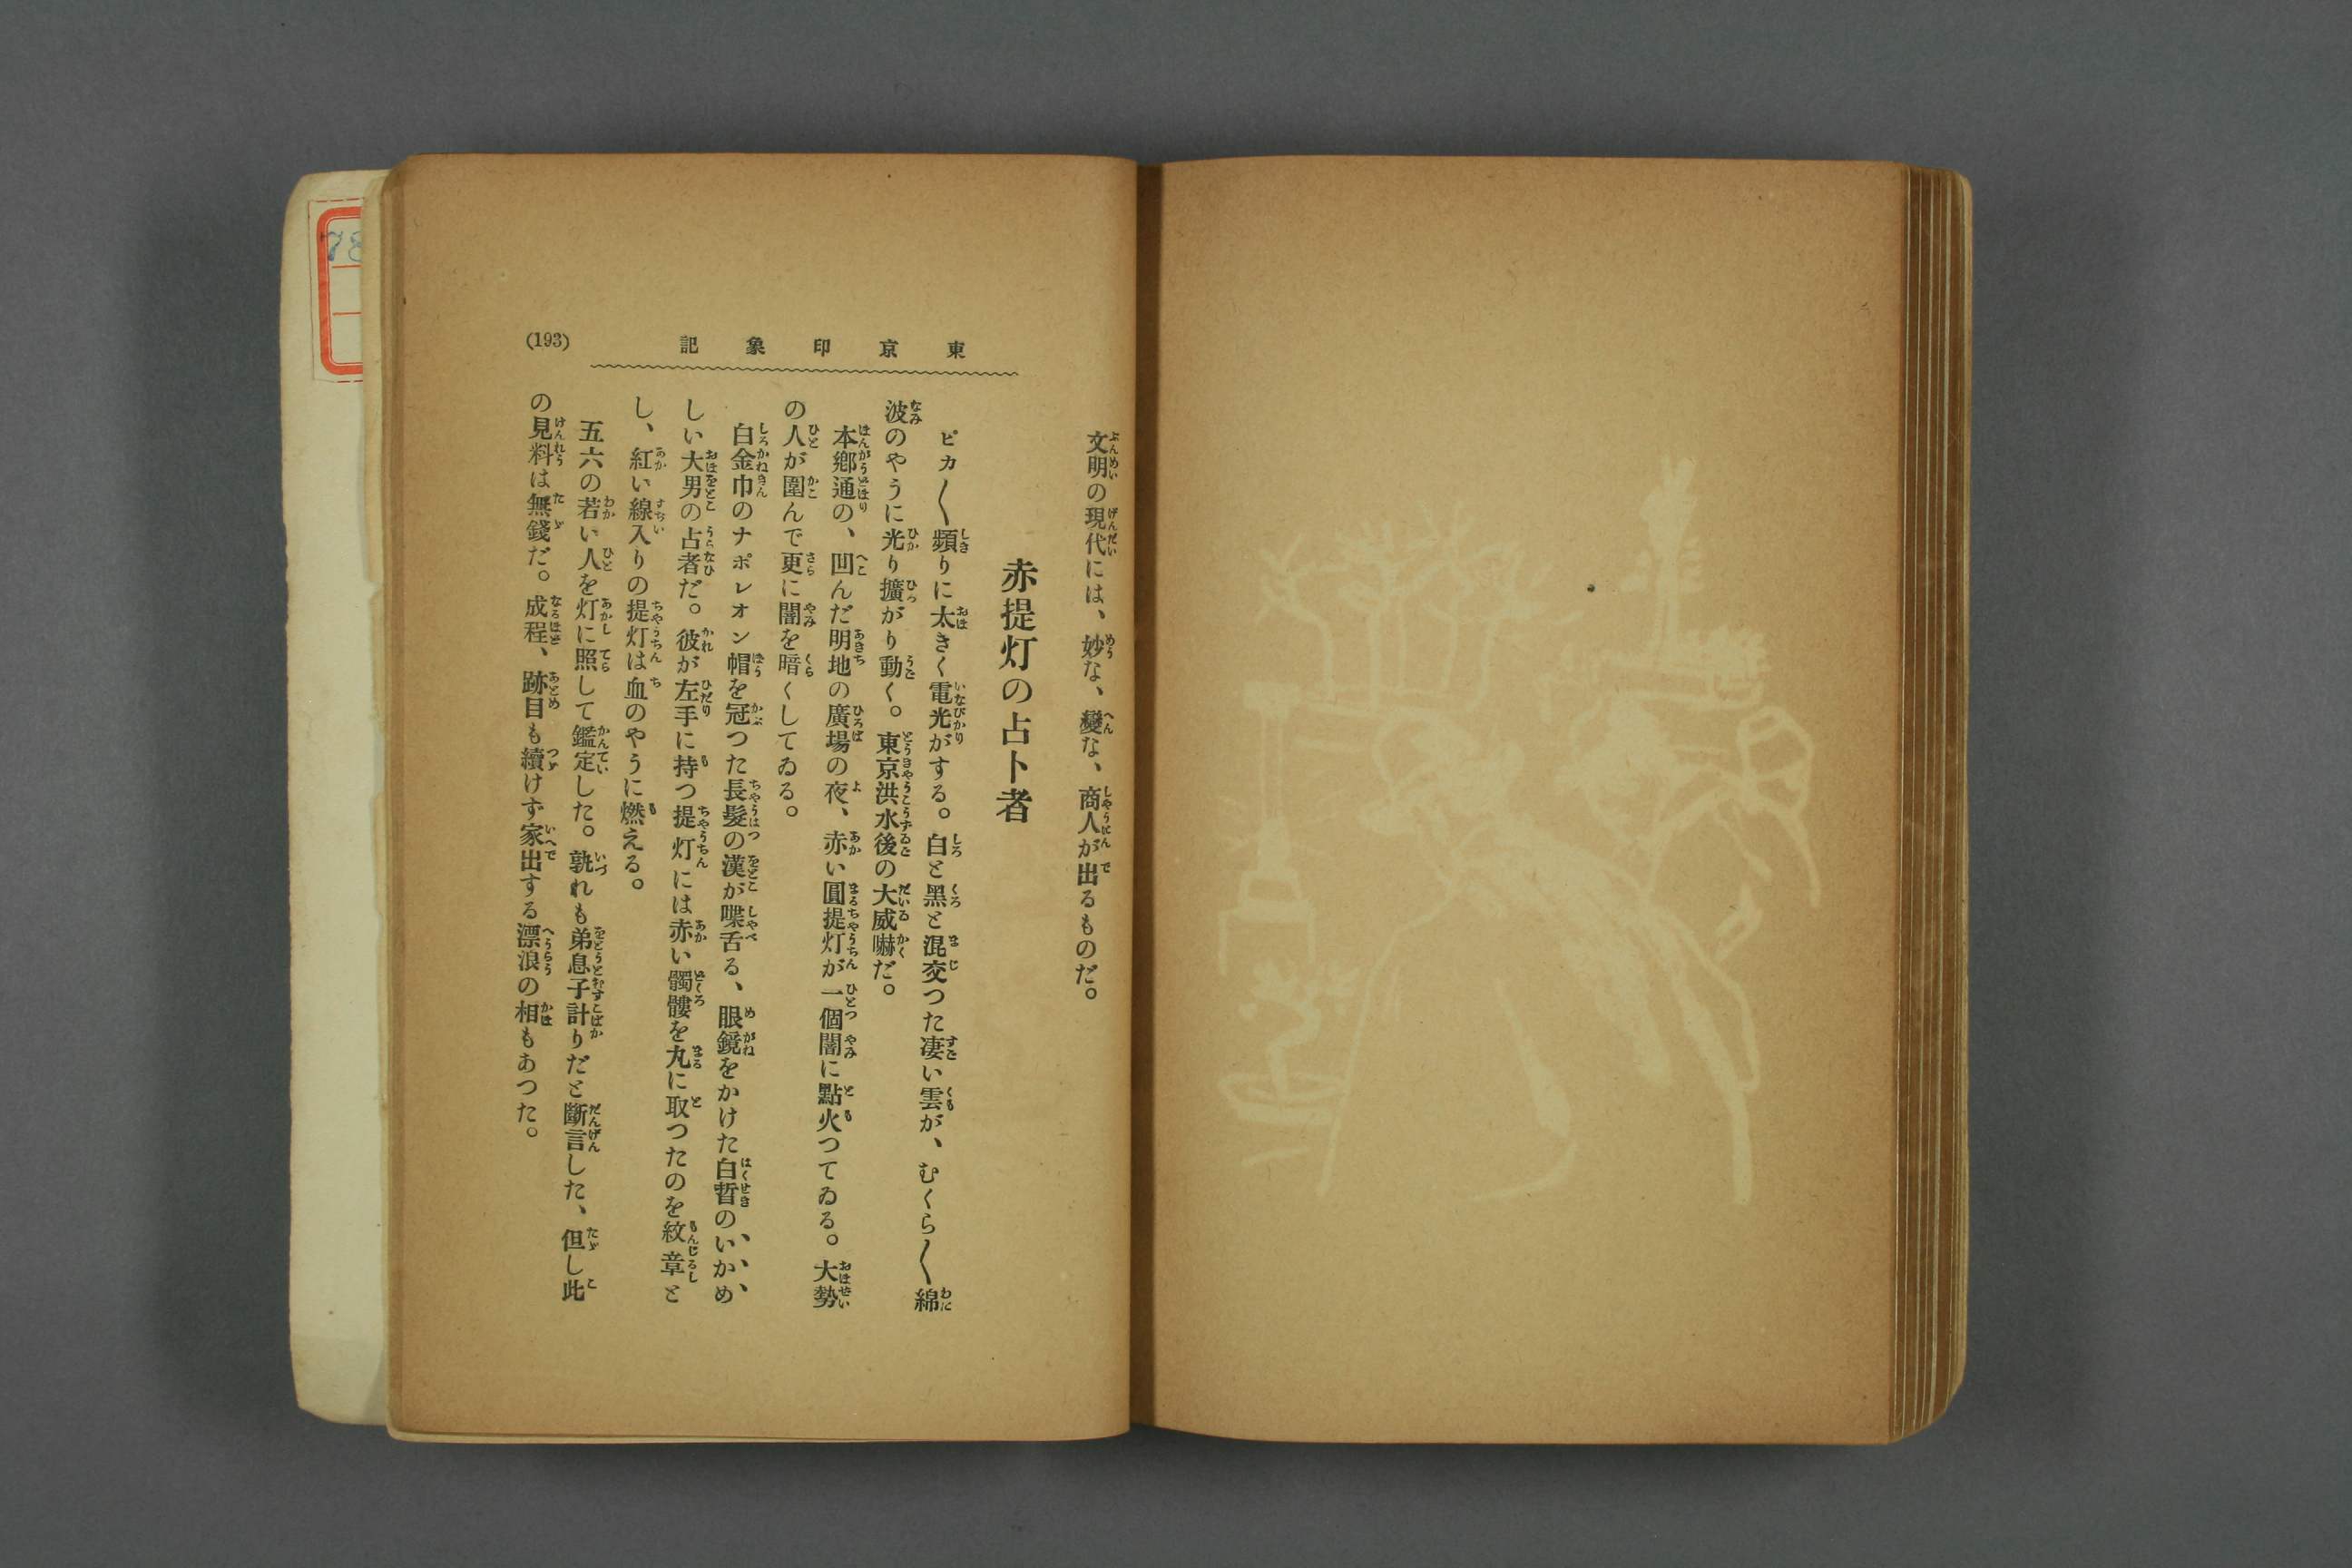 東京印象記
(193)
文明の現代には、妙な、變な、商人が出るものだ。
赤提灯の占卜者
ピカ〳〵頻りに太きく電光がする。白と黑と混交つた凄い雲が、むくら〳〵綿
波のやうに光り擴がり動く。東京洪水後の大威嚇だ。
本鄕通の、凹んだ明地の廣場の夜、赤い圓提灯が一個闇に點火つてゐる。大勢
の人が圍んで更に闇を暗くしてゐる。
白金巾のナポレオン帽を冠つた長髮の漢が喋舌る、眼鏡をかけた白晢のいかめ
しい大男の占者だ。彼が左手に持つ提灯には赤い髑髏を丸に取つたのを紋章と
し、紅い線入りの提灯は血のやうに燃える。
五六の若い人を灯に照して鑑定した。孰れも弟息子計りだと斷言した、但し此
の見料は無錢だ。成程、跡目も續けず家出する漂浪の相もあつた。
78